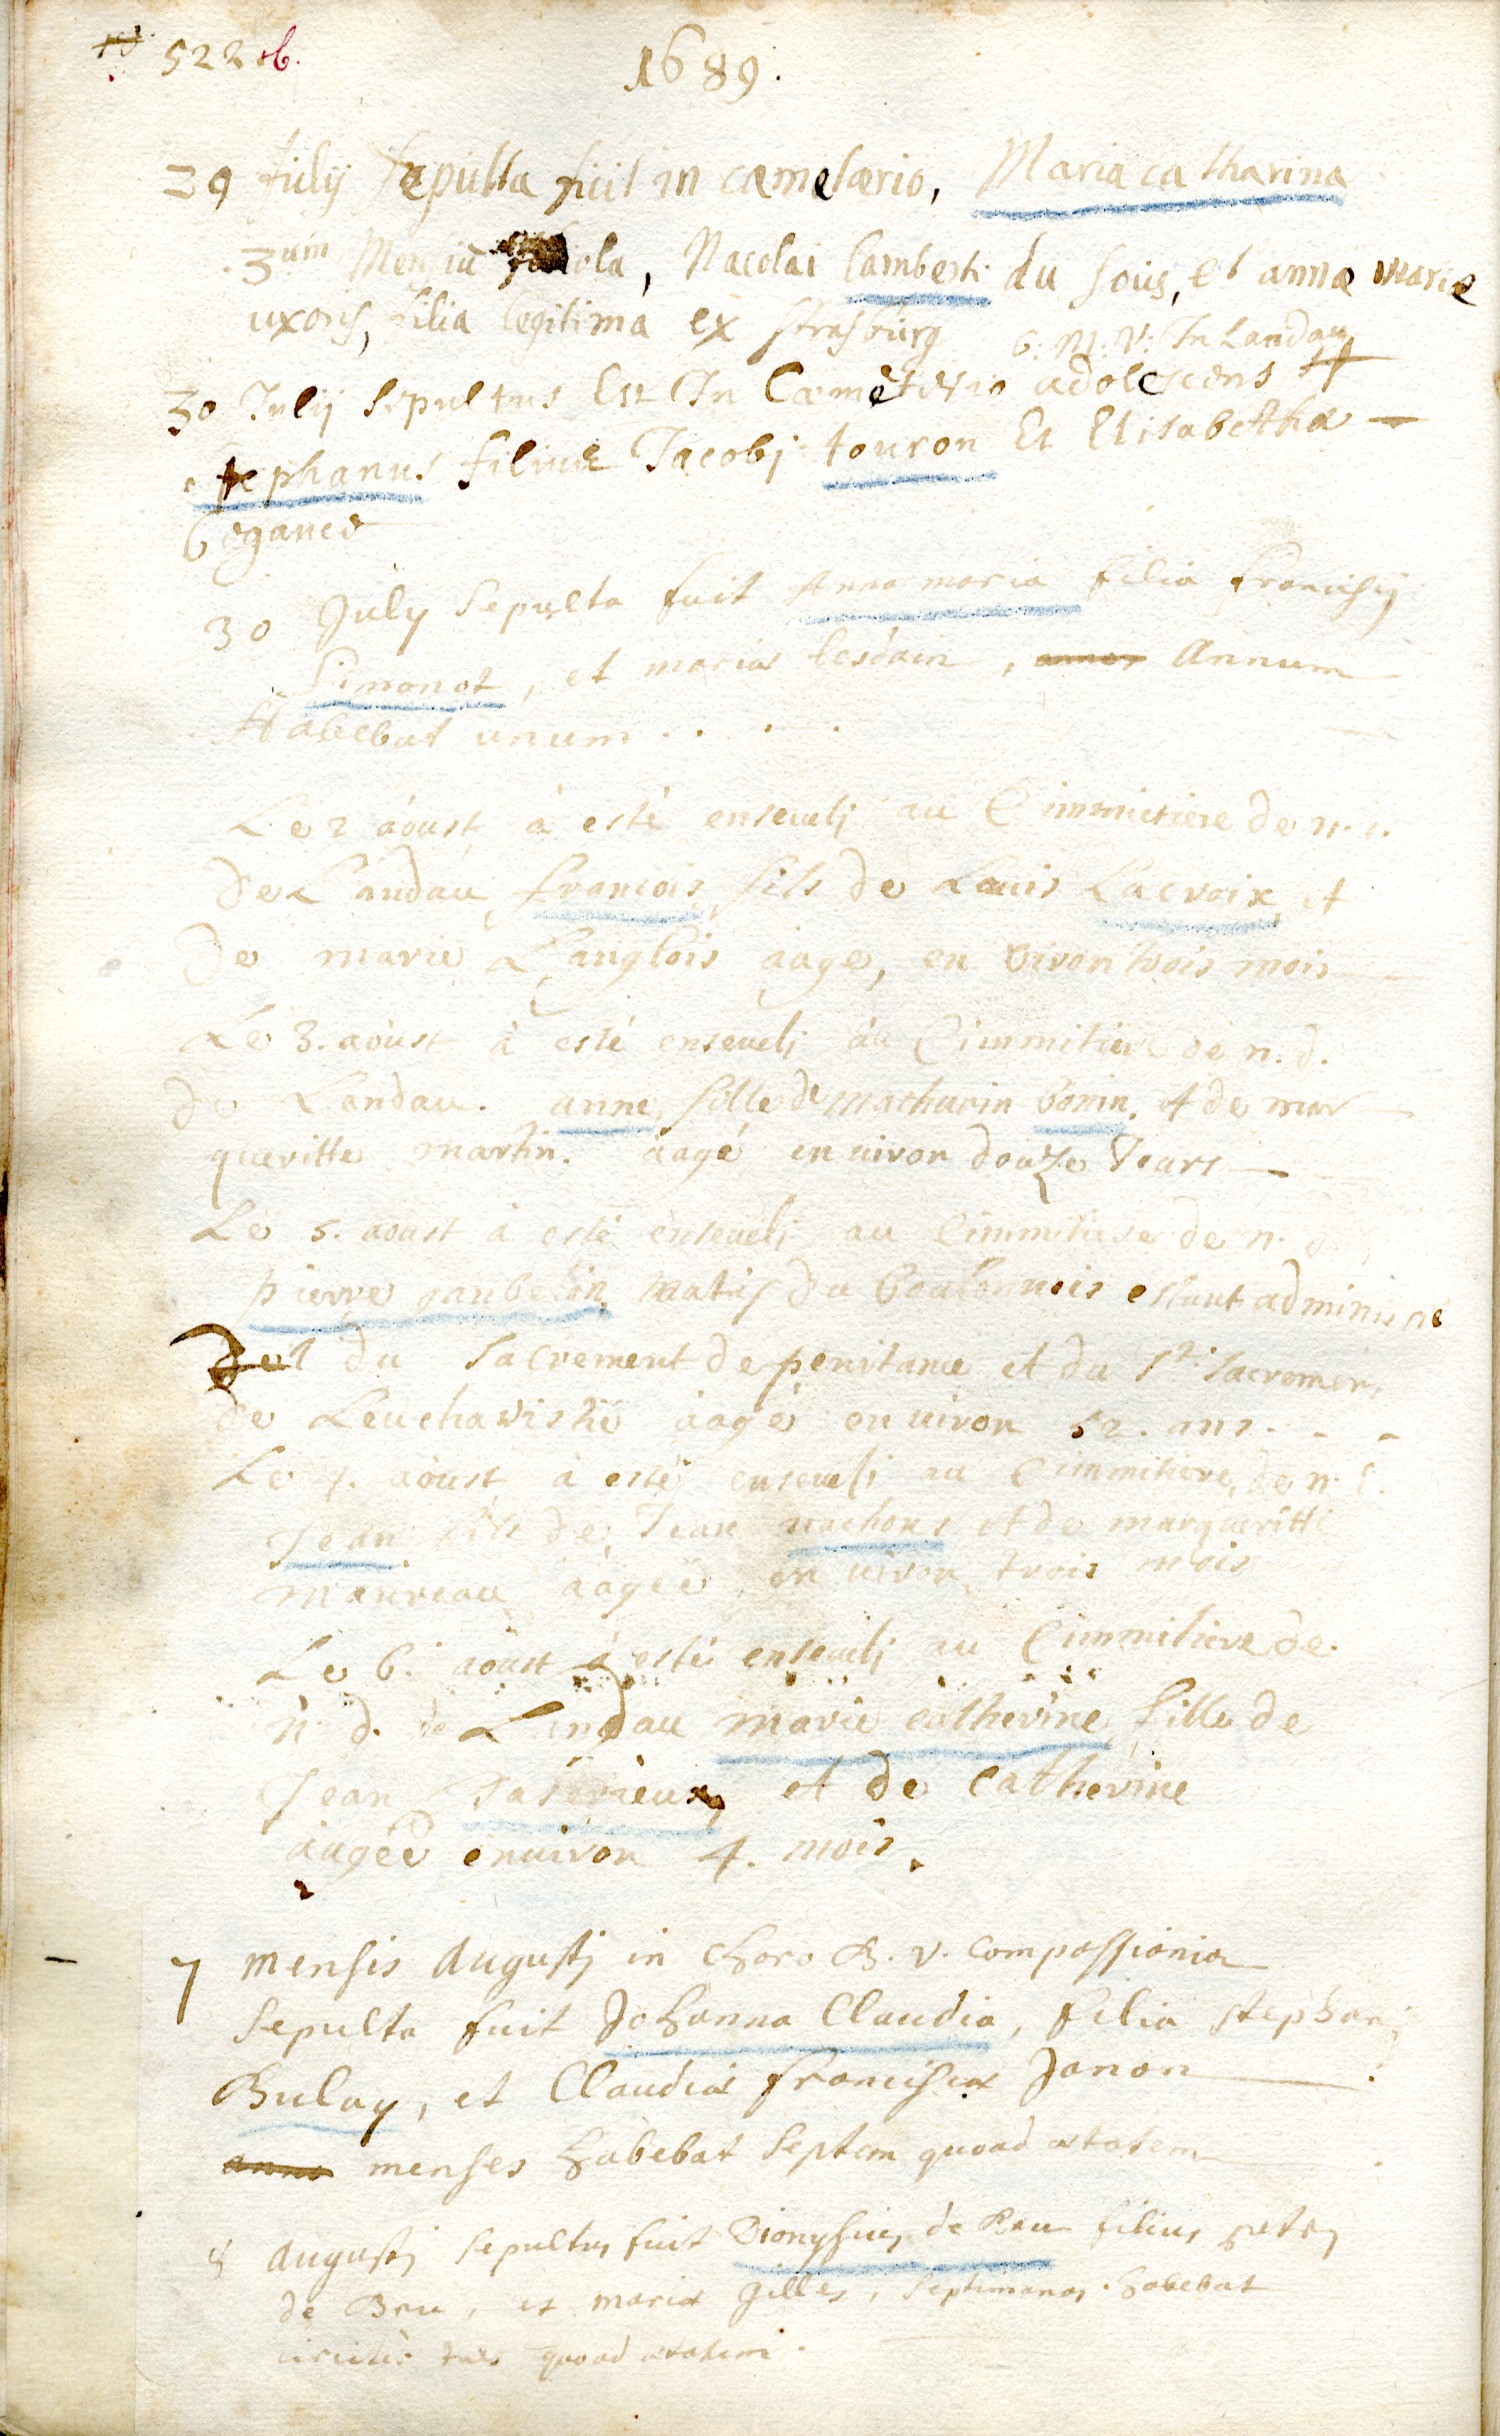 522 b.
1689.
29 Julij sepulta fuit in cæmetærio, Maria catharina
3um Mensiũ filiola, Nacolai Lamberti du Sois, et annæ mariæ
uxoris, filia legitima ex strasburg B: M: V: In Landau
30 Julij Sepultus Est In Cæmeterio adolescens
stephanus filius Jacobj touron Et Elisabethæ
Beganes
30 July Sepulta fuit Anna maria filia Francisij
Simonot, et mariæ lesdain, Annum
Habebat unum . . . .
Le 2 aoust à esté enseuelj au Cimmietiere de n.
De Landau francois fils de Louis Lacroix, et
De marie Langlois aage, en viron trois mois
Le 3. aoust à esté enseuelj au Cimmitiere de n. d.
De Landau. anne, fille de Mathurin bonin. et de mar
gueritte martin. aagé enuiron douze Jours
Le 5. aoust à esté enseuelj au Cimmitiere de n.
pierre natif du Boulonnois estant administré
du Sacrement de penitance et du St. Sacremen
de Leucharistie aagé enuiron 52. ans. - -
Le 4. aoust à esté enseuelj au Cimmitiere, de n. d.
Jean fils de Jean et de margueritte
Maureau aagee enuiron trois mois
Le 6. aoust à esté enseuelj au Cimmitiere de
n. d. de Landau marie catherine fille de
Jean et de Catherine
aageé enuiron 4. mois.
7 mensis Augustj in Choro B. V. Compassionia
Sepulta fuit Johanna Claudia, filia stephanj
Bulay, et Claudiæ Francisiæ Janon
anno menses habebat Septem quoad ætatem
8 Augustj Sepultus fuit Dionysius de Bru filius petrj
de Bru, et mariæ Gilles, Septimanas habebat
circiter tres quoad ætatem.